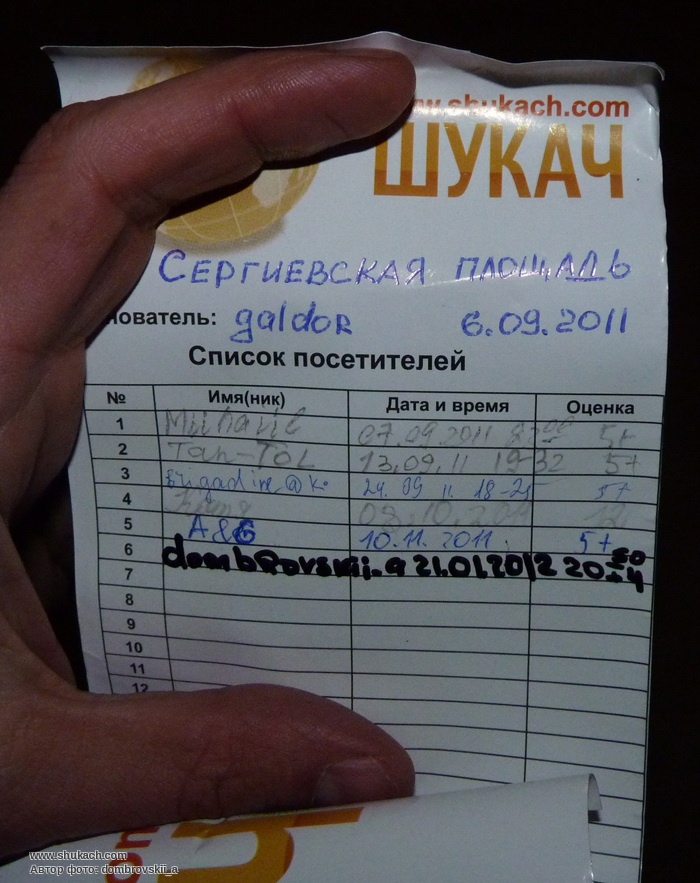 www.shukach.com
ШУКАЧ
СЕРГИЕВСКАЯ ПЛОЩАДЬ
нователь: galdor 6.09.2011
Список посетителей
№ Имя(ник) Дата и время Оценка
1 07.09.2011 5+
2 Tan-Tol 13.09.11 19-32 5+
3 Brigadir@k. 24.09 11. 18-25 5+
4 08.10.2011 12
5 A&G 10.11.2011. 5+
6 dombrovskii_a 21.01.2012 20:50
7 5+
8
9
10
11
12
www.shukach.com
Автор фото: dombrovskii_a